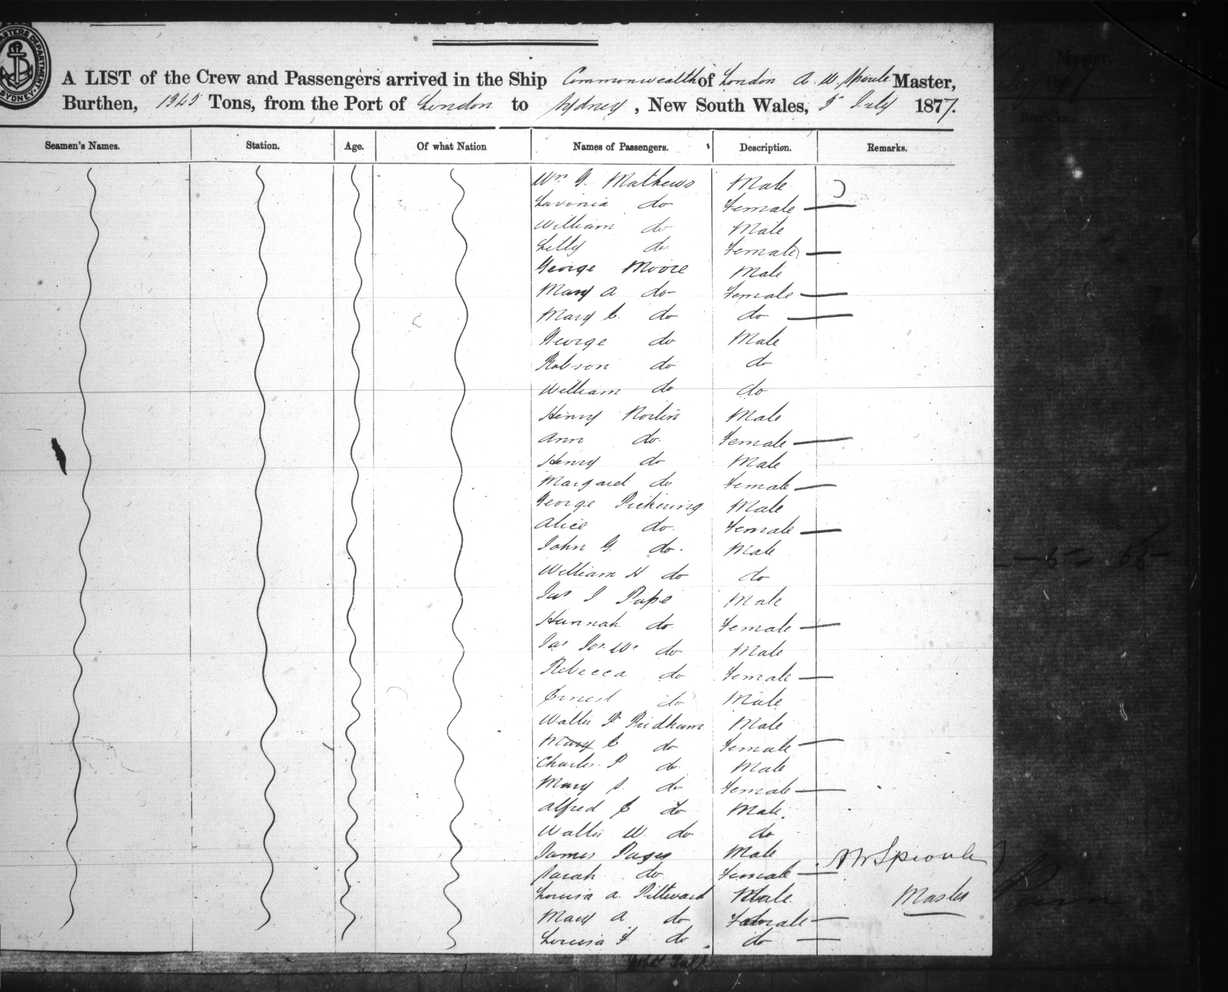 A LIST of the Crew and Passengers arrived in the Ship Commonwealth of London A. W. Sproule Master,
Burthen, Tons, from the Port of London to Sydney, New South Wales, 5 July 1877.
Seamen's Names. Station. Age. Of what Nation Names of Passengers. Description. Remarks.
Wm G. Mathews Male
Lavinia do Female —
William do Male
Lilly do Female —
George Moore Male
Mary A do Female —
Mary E. do do —
George do Male
Robson do do
William do do
Henry Male
Ann do Female —
Henry do Male
Margaret do Female —
George Pickering Male
Alice do Female —
John G. do Male
William H do do
Jas J Pape Male
Hannah do Female —
Jas do Male
Rebecca do Female —
Ernest do Male
Walter Male
Mary E do Female —
Charles P do Male
Mary S. do Female —
Alfred E do Male
Walter W. do do
James Male A W Sproule
Sarah do Female —
Louisa A. Male Master
Mary A do Female —
Louisa F do do —